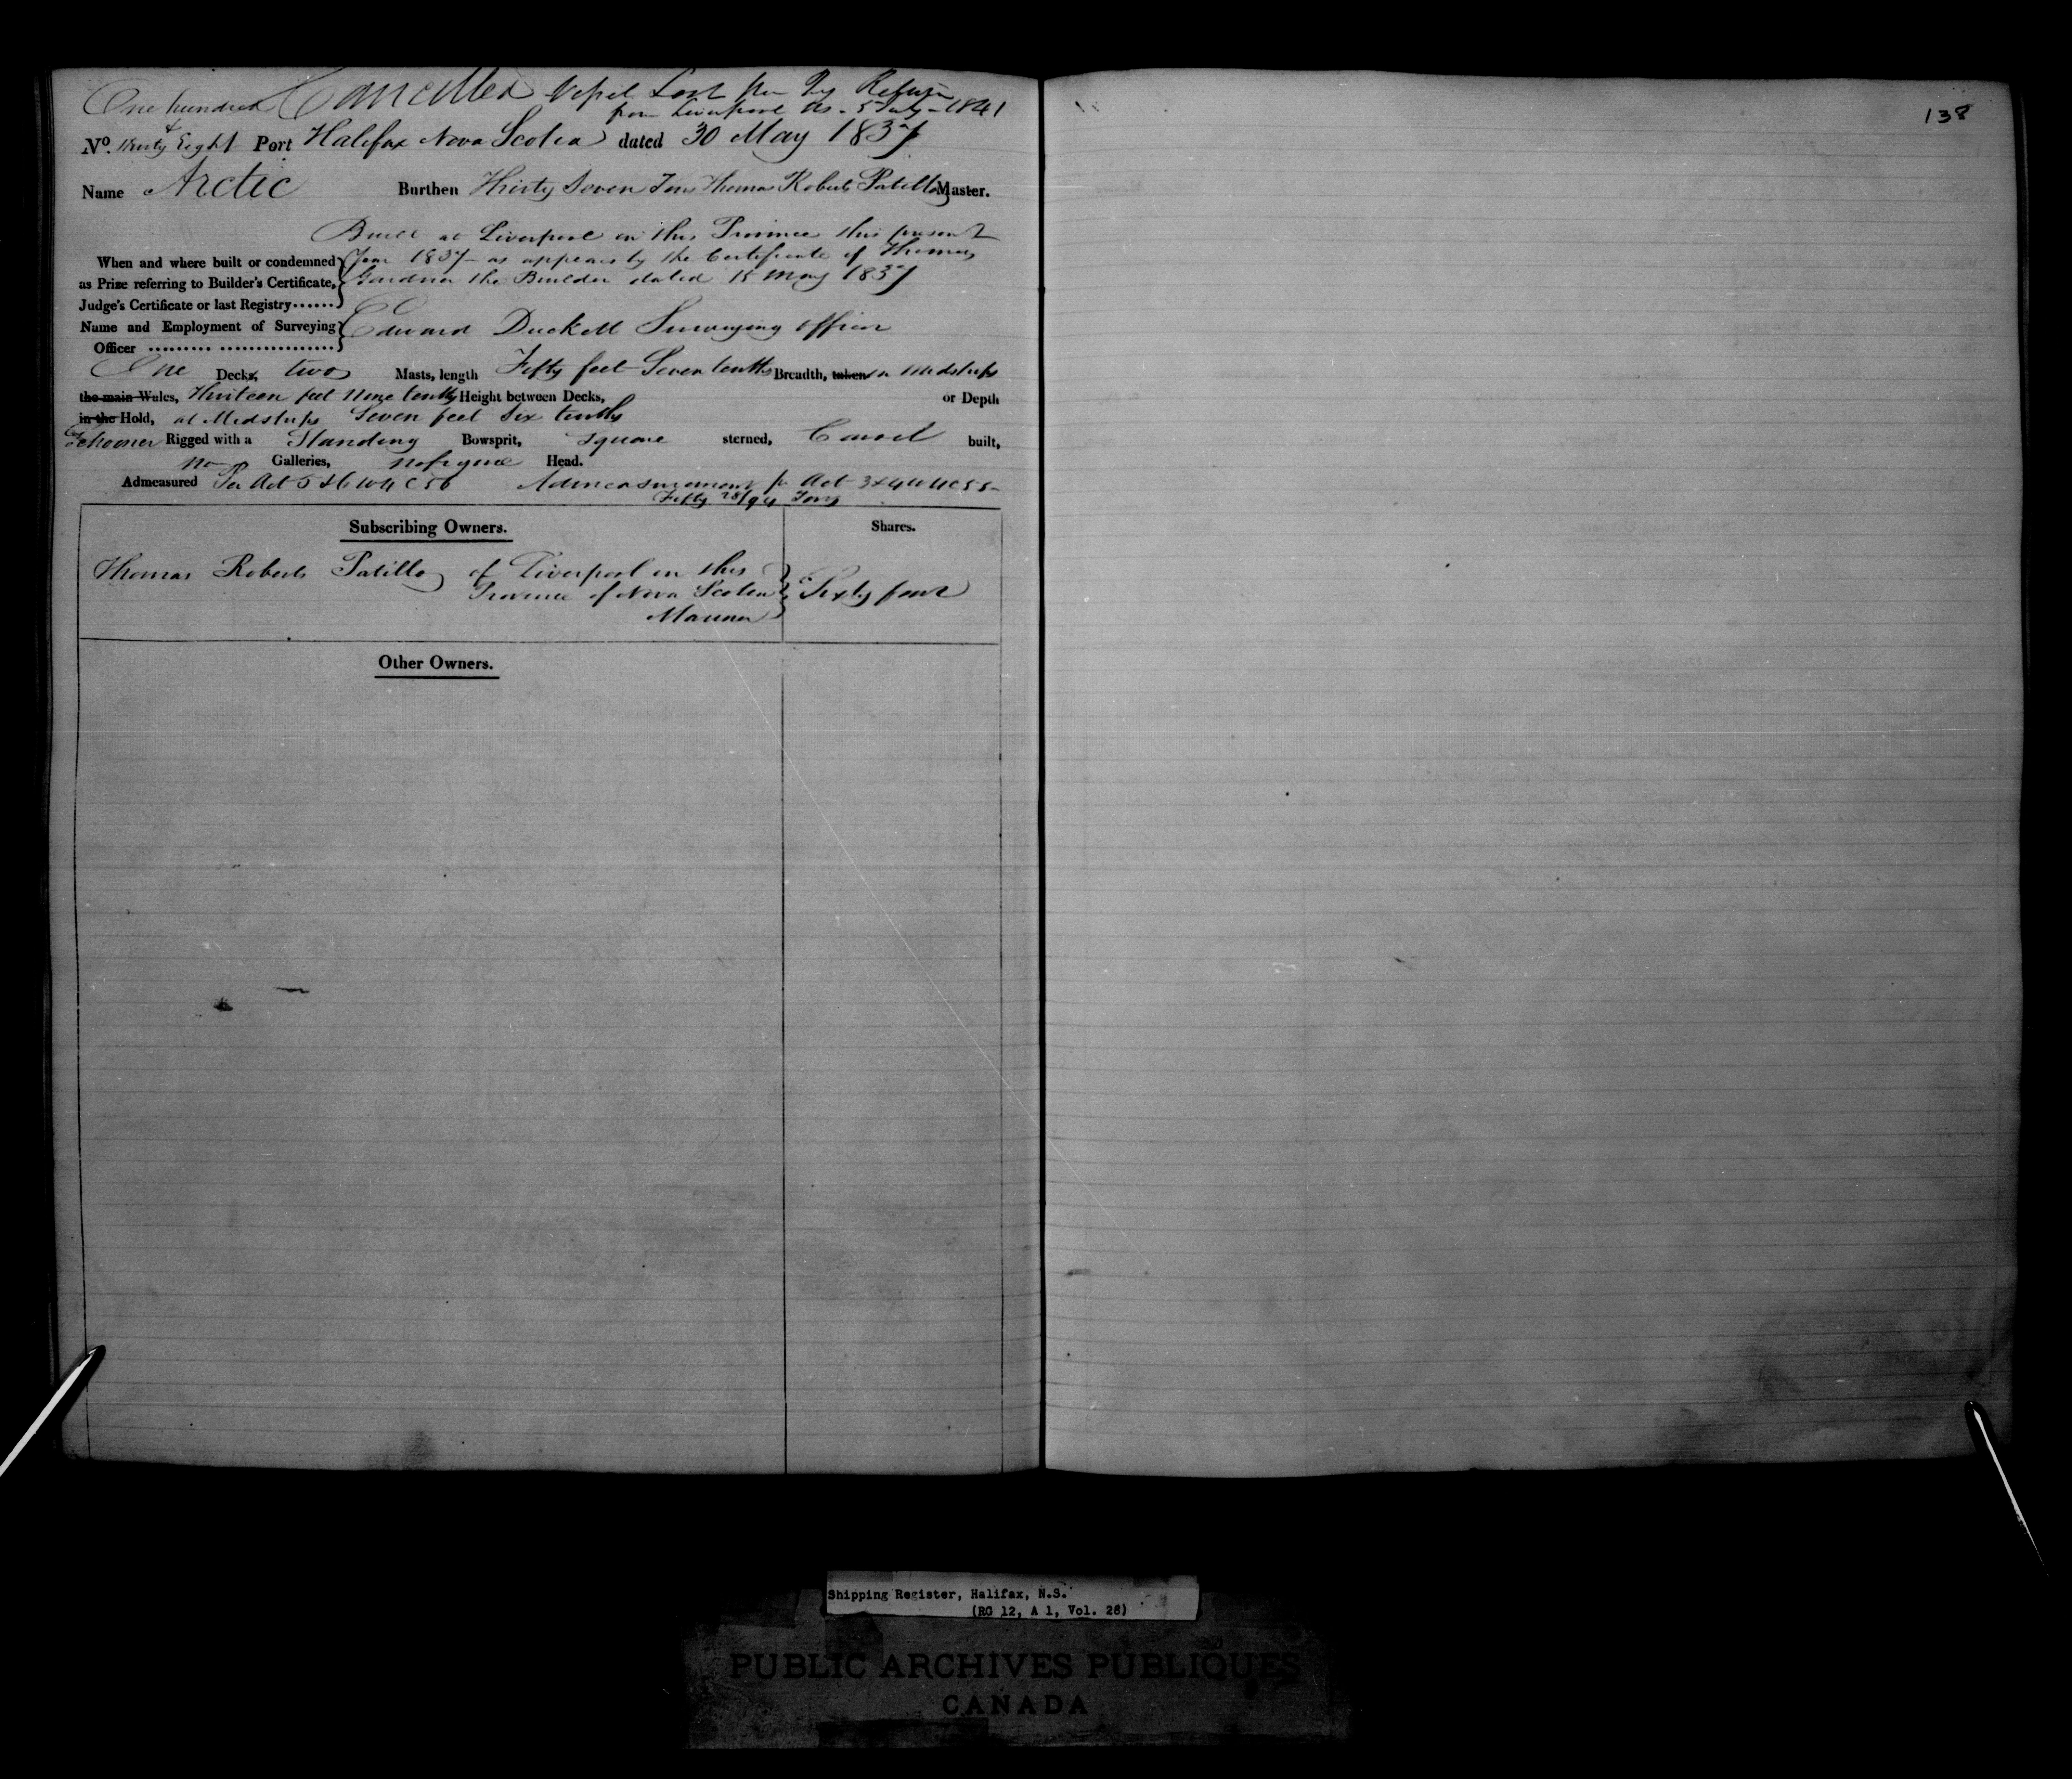 One hundred Cancelled Vessel Lost per Reg Return
from Liverpool NS. 5 July - 1841
138
& 
No. Thirty Eight Port Halifax Nova Scotia dated 30 May 1837
Name Arctic Burthen Thirty Seven Tons Thomas Roberts Patillo Master.
Built at Liverpool in this Province this present
When and where built or condemned Year 1837 - as appears by the Certificate of Thomas
as Prize referring to Builder's Certificate, Gardner the Builder dated 15 May 1837
Judge's Certificate or last Registry......
Name and Employment of Surveying Edward Duckett Surveying officer
Officer ......... ................
One Decks, two Masts, length Fifty feet Seven tenths Breadth, taken in Midships
the main Wales, Thirteen feet Nine tenths Height between Decks, or Depth
in the Hold, at Midships Seven feet Six tenths
Schooner Rigged with a Standing Bowsprit, Square sterned, Carvel built,
no Galleries, no figure Head.
Admeasured Per Act 5 & 6 W 4 C 56 Admeasurement pr Act 3 & 4 W 4 C 55 -
Fifty 28/94 Tons
Subscribing Owners. Shares.
Thomas Roberts Patillo of Liverpool in this
Province of Nova Scotia Sixty four
Mariner
Other Owners.
Shipping Register, Halifax, N.S.
(RG 12, A 1, Vol. 28)
PUBLIC ARCHIVES PUBLIQUES
CANADA